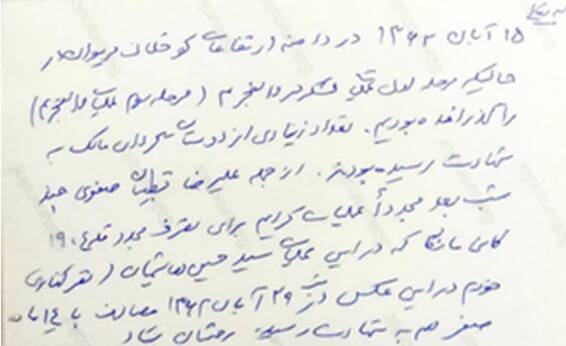 ۱۵ آبان ۱۳۶۲ در دامنه ارتفاعات کوخلان مریوان در
حالیکه مرحله اول عملیات لشکر در والفجر ۴ (مرحله سوم عملیات والفجر ۴)
را گذرانده بودیم. تعداد زیادی از دوستان گردان مالک به
شهادت رسیده بودند. از جمله علیرضا صفوی چند
شب بعد مجدداً عملیات کردیم برای تصرف مجدد قله ۱۹۰۴
کانی مانگا که در این عملیات سید حسین هاشمیان (نفر کناری
خودم در این عکس) در شب ۲۹ آبان ۱۳۶۲ مصادف با ۱۴ ماه
صفر هم به شهادت رسید. روحشان شاد